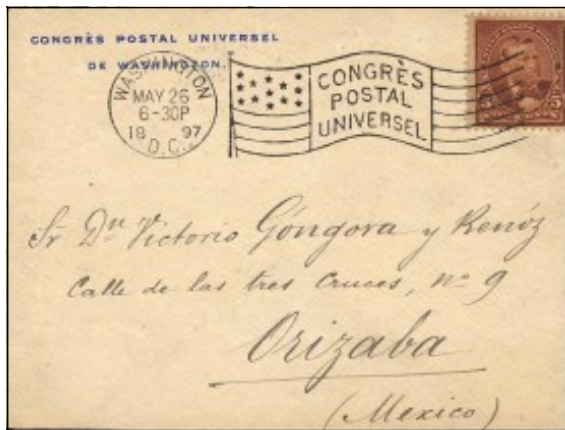 CONGRÈS POSTAL UNIVERSEL
DE WASHINGTON.
WASHINGTON
MAY 26
6-30P
18 97
D.C.
CONGRÈS
POSTAL
UNIVERSEL
5
Sr Dn Victorio Góngora y Renóz
Calle de las tres Cruces, no 9
Orizaba
(Mexico)